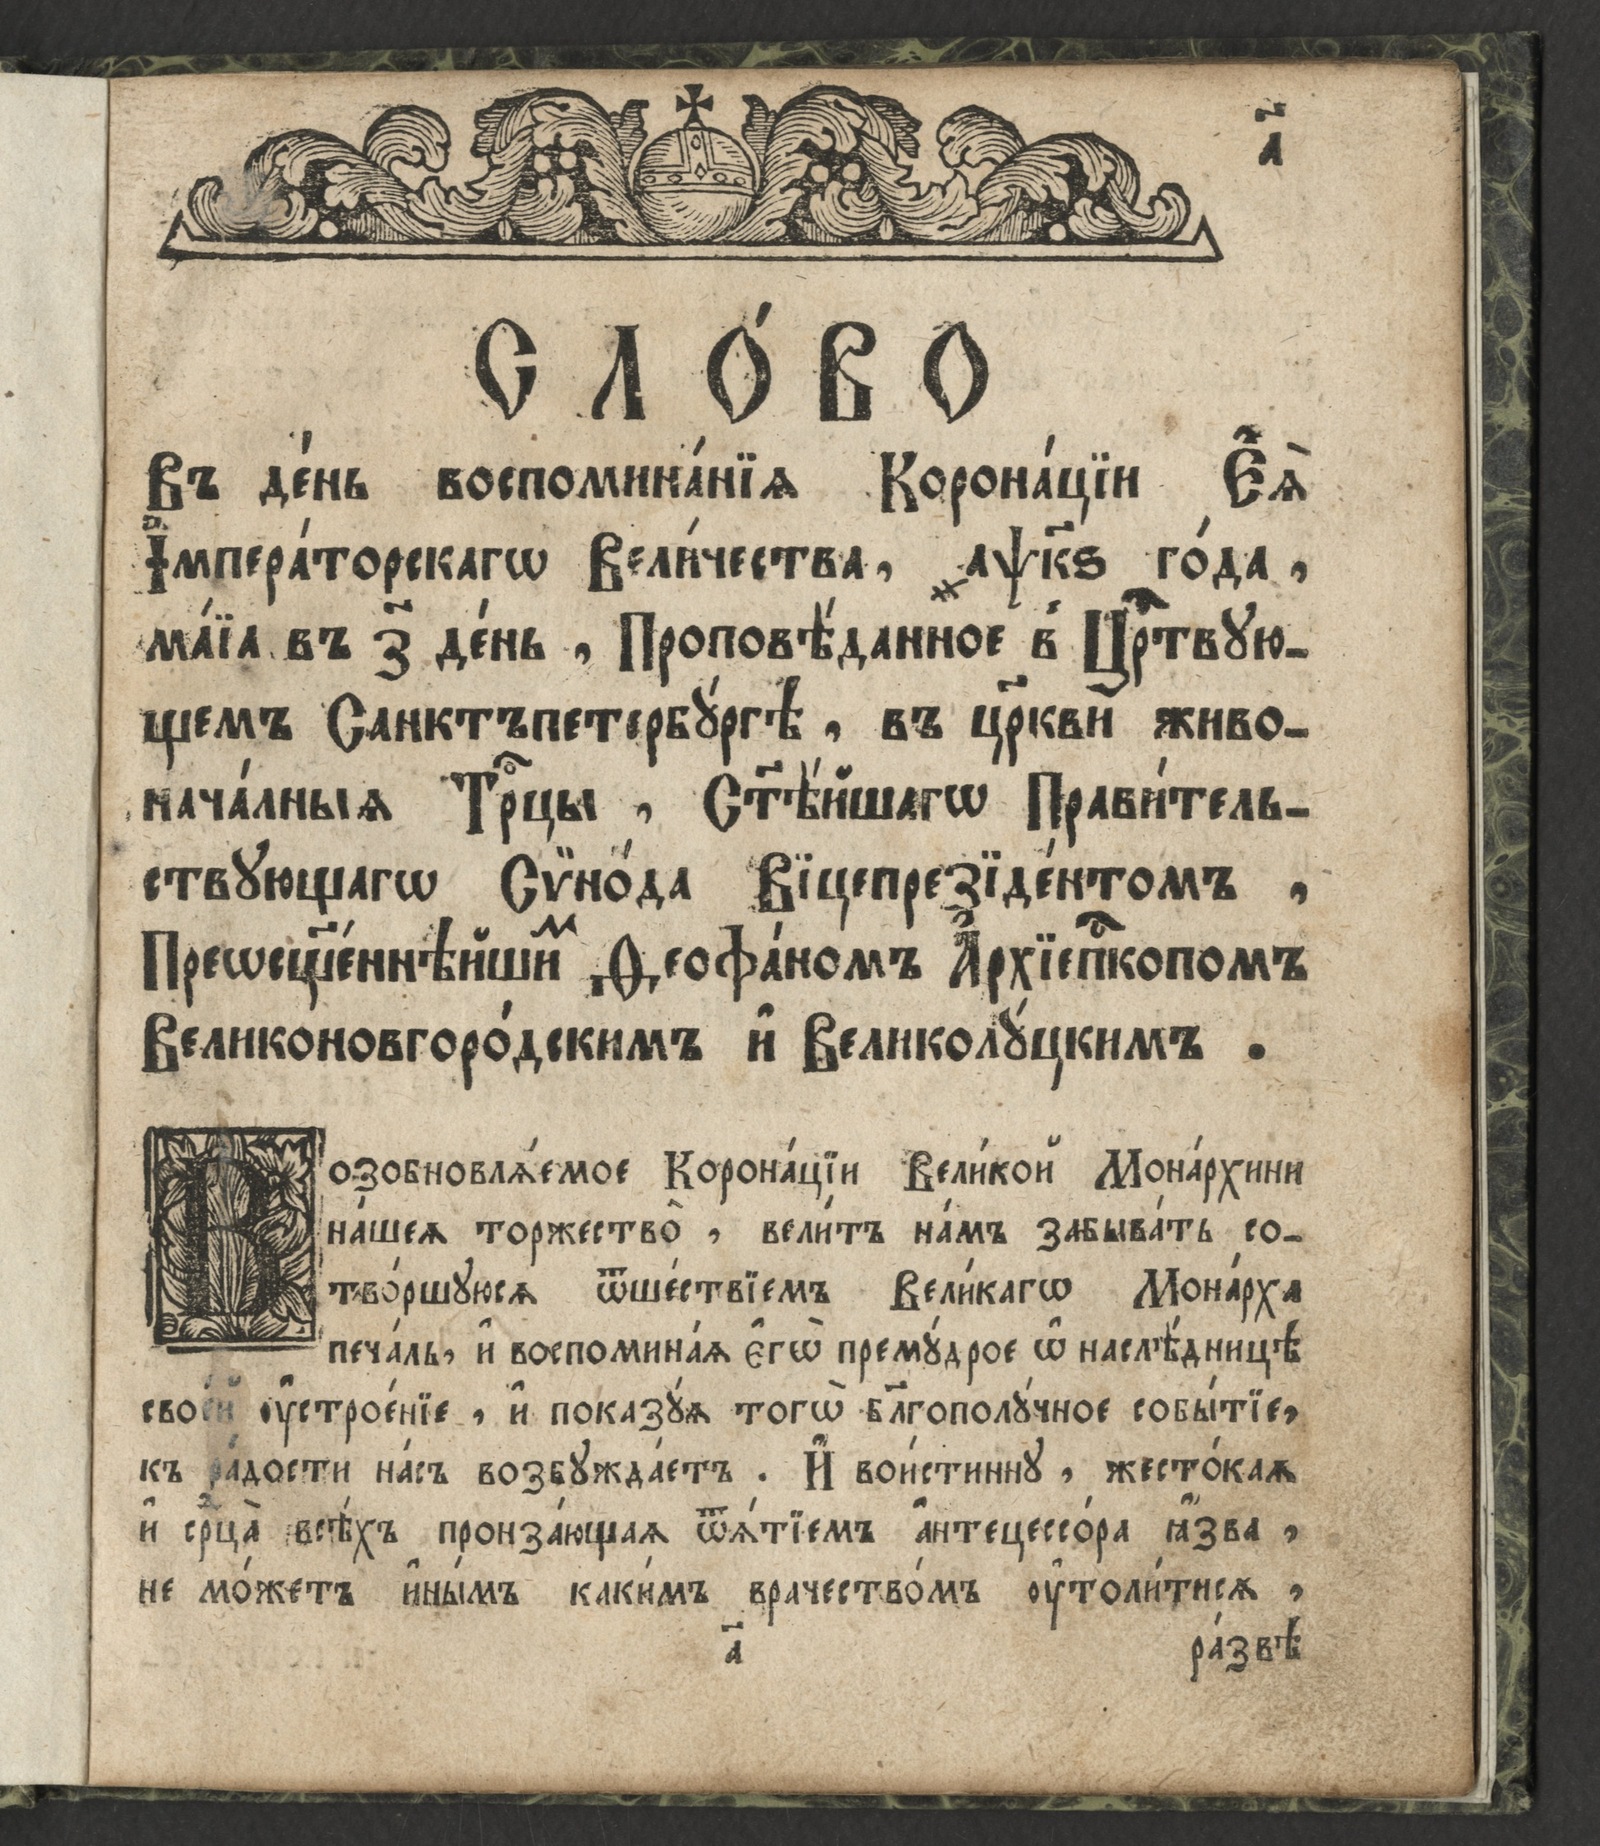 а҃
СЛО́ВО
Въ де́нь воспомина́нїѧ Корона́цїи Є҆ѧ̀
І҆мпера́торскагѡ Вели́чества, ҂аѱк҃ѕ го́да,
ма́їа въ з҃ де́нь, Проповѣ́данное в̾ Црⷭ҇твꙋю-
щемъ Санктъпетербꙋ́ргѣ, въ цр҃кви живо-
нача́лныѧ Трⷪ҇цы, Ст҃ѣ́йшагѡ Прави́тель-
ствꙋющагѡ Сѷно́да Вїцепрезїде́нтомъ,
Преѡсщ҃е́ннѣйшиⷨ Ѳеофа́номъ А҆рхїепⷭ҇копомъ
Великоновгоро́дскимъ и҆ Великолꙋ́цкимъ.
Возобновлѧ́емое Корона́цїи Вели́кой Мона́рхини
на́шеѧ торжество̀, вели́тъ на́мъ забыва́ть со-
тво́ршꙋюсѧ ѿше́ствїемъ Вели́кагѡ Мона́рха
печа́ль, и҆ воспомина́ѧ є҆гѡ̀ премꙋ́дрое ѡ҆ наслѣ́дницѣ
свое́й ᲂу҆строе́нїе, и҆ показꙋ́ѧ тогѡ̀ бл҃гополꙋ́чное собы́тїе,
къ ра́дости на́съ возбꙋжда́етъ. И҆ вои́стиннꙋ, жесто́каѧ
и҆ срⷣца̀ всѣ́хъ пронза́ющаѧ ѿѧ́тїемъ а҆нтецессо́ра ꙗ҆́зва,
не мо́жетъ и҆ны́мъ каки́мъ врачество́мъ ᲂу҆толи́тисѧ,
а҃ ра́звѣ